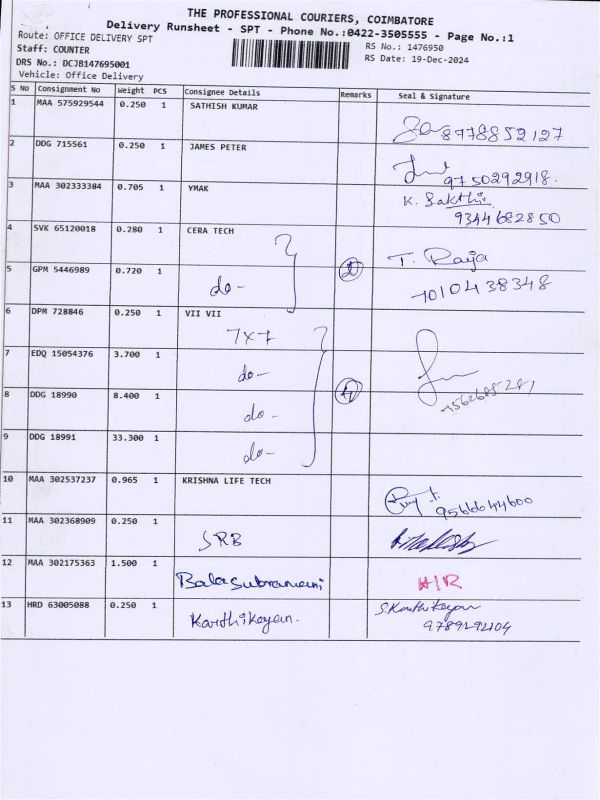 THE PROFESSIONAL COURIERS, COIMBATORE
Delivery Runsheet - SPT - Phone No.:0422-3505555 - Page No.:1
Route: OFFICE DELIVERY SPT
RS No.: 1476950
Staff: COUNTER
RS Date: 19-Dec-2024
DRS No.: DCJB147695001
Vehicle: Office Delivery
S No Consignment No Weight PCS Consignee Details Remarks Seal & Signature
1 MAA 575929544 0.250 1 SATHISH KUMAR
8778852127
2 DDG 715561 0.250 1 JAMES PETER
9750292918.
3 MAA 302333384 0.705 1 YMAK K. Sakthi
9344682850
4 SVK 65120018 0.280 1 CERA TECH T. Raja
5 GPM 5446989 0.720 1 do- 2 7010438348
6 DPM 728846 0.250 1 VII VII
7x7
7 EDQ 15054376 3.700 1 do-
8 DDG 18990 8.400 1 do- 4
9 DDG 18991 33.300 1 do-
10 MAA 302537237 0.965 1 KRISHNA LIFE TECH
9566644600
11 MAA 302368909 0.250 1 SRB
12 MAA 302175363 1.500 1 Balasubramani H/R
13 HRD 63005088 0.250 1 Karthikeyan. S.Karthikeyan